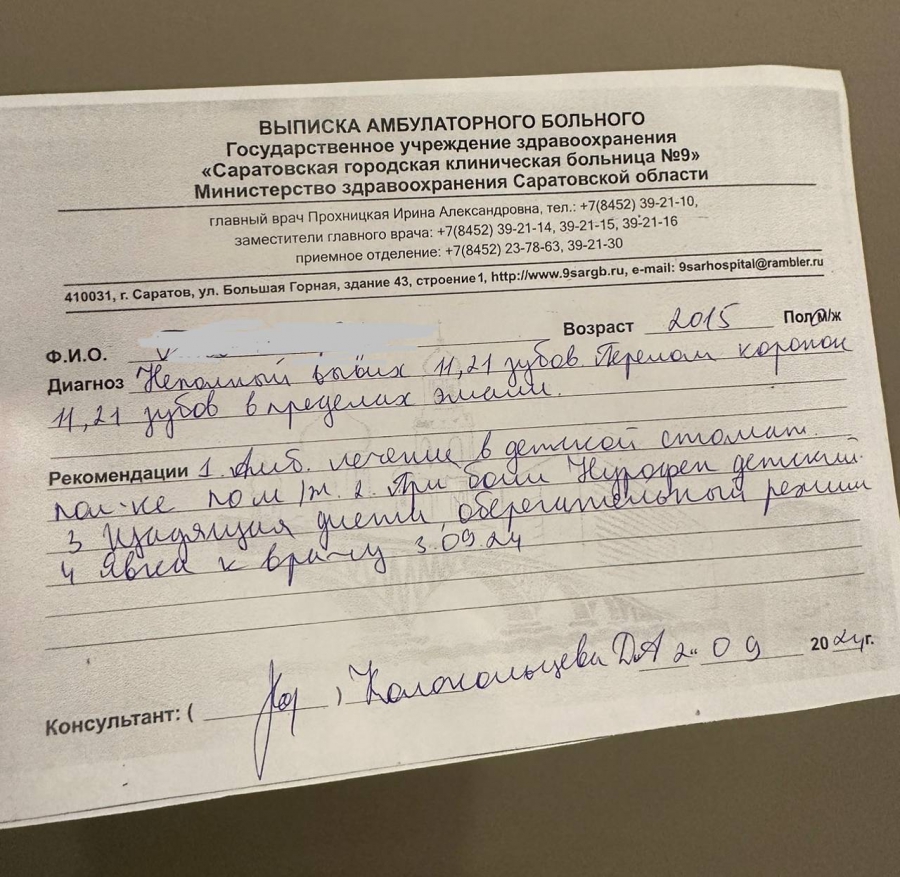 ВЫПИСКА АМБУЛАТОРНОГО БОЛЬНОГО
Государственное учреждение здравоохранения
«Саратовская городская клиническая больница №9»
Министерство здравоохранения Саратовской области
главный врач Прохницкая Ирина Александровна, тел.: +7(8452) 39-21-10,
заместители главного врача: +7(8452) 39-21-14, 39-21-15, 39-21-16
приемное отделение: +7(8452) 23-78-63, 39-21-30
410031, г. Саратов, ул. Большая Горная, здание 43, строение1, http://www.9sargb.ru, e-mail: 9sarhospital@rambler.ru
Ф.И.О. Возраст 2015 Пол м/ж
Диагноз Неполный вывих 11,21 зубов. Перелом коронок
11,21 зубов в пределах эмали.
Рекомендации 1. Амб. лечение в детской стомат.
пол-ке по м/ж. 2. При боли Нурофен детский.
3 Щадящая диета, оберегательный режим
4 Явка к врачу 3.09.24
Консультант: ( ) Колокольцева ДА 2" 09 2024г.